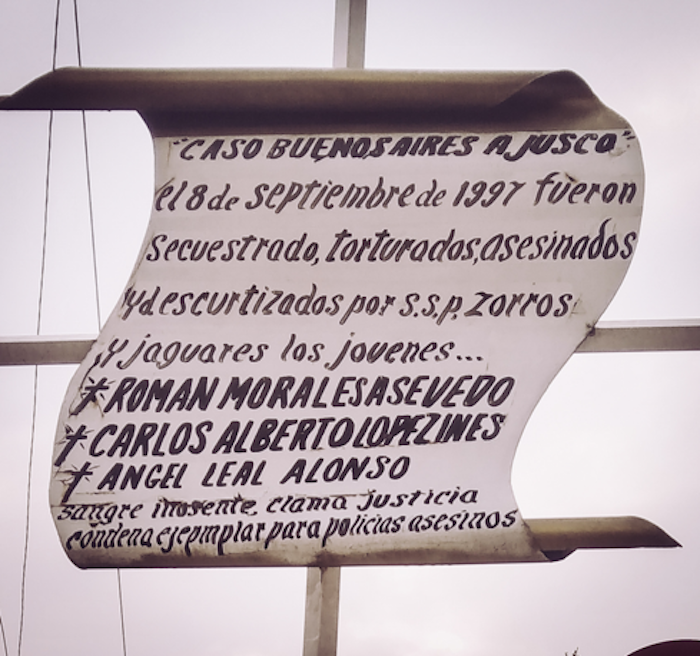 "CASO BUENOSAIRES AJUSCO"
el 8 de septiembre de 1997 fueron
secuestrado, torturados, asesinados
y descurtizados por s.s.p. zorros
y jaguares los jovenes...
† ROMAN MORALES ASEVEDO
† CARLOS ALBERTO LOPEZ INES
† ANGEL LEAL ALONSO
sangre inosente, clama justicia
condena ejepmplar para policias asesinos